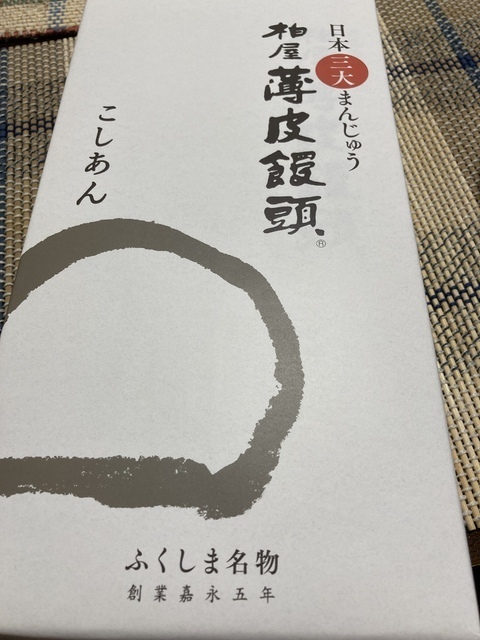 日本三大まんじゅう
柏屋薄皮饅頭®
こしあん
ふくしま名物
創業嘉永五年